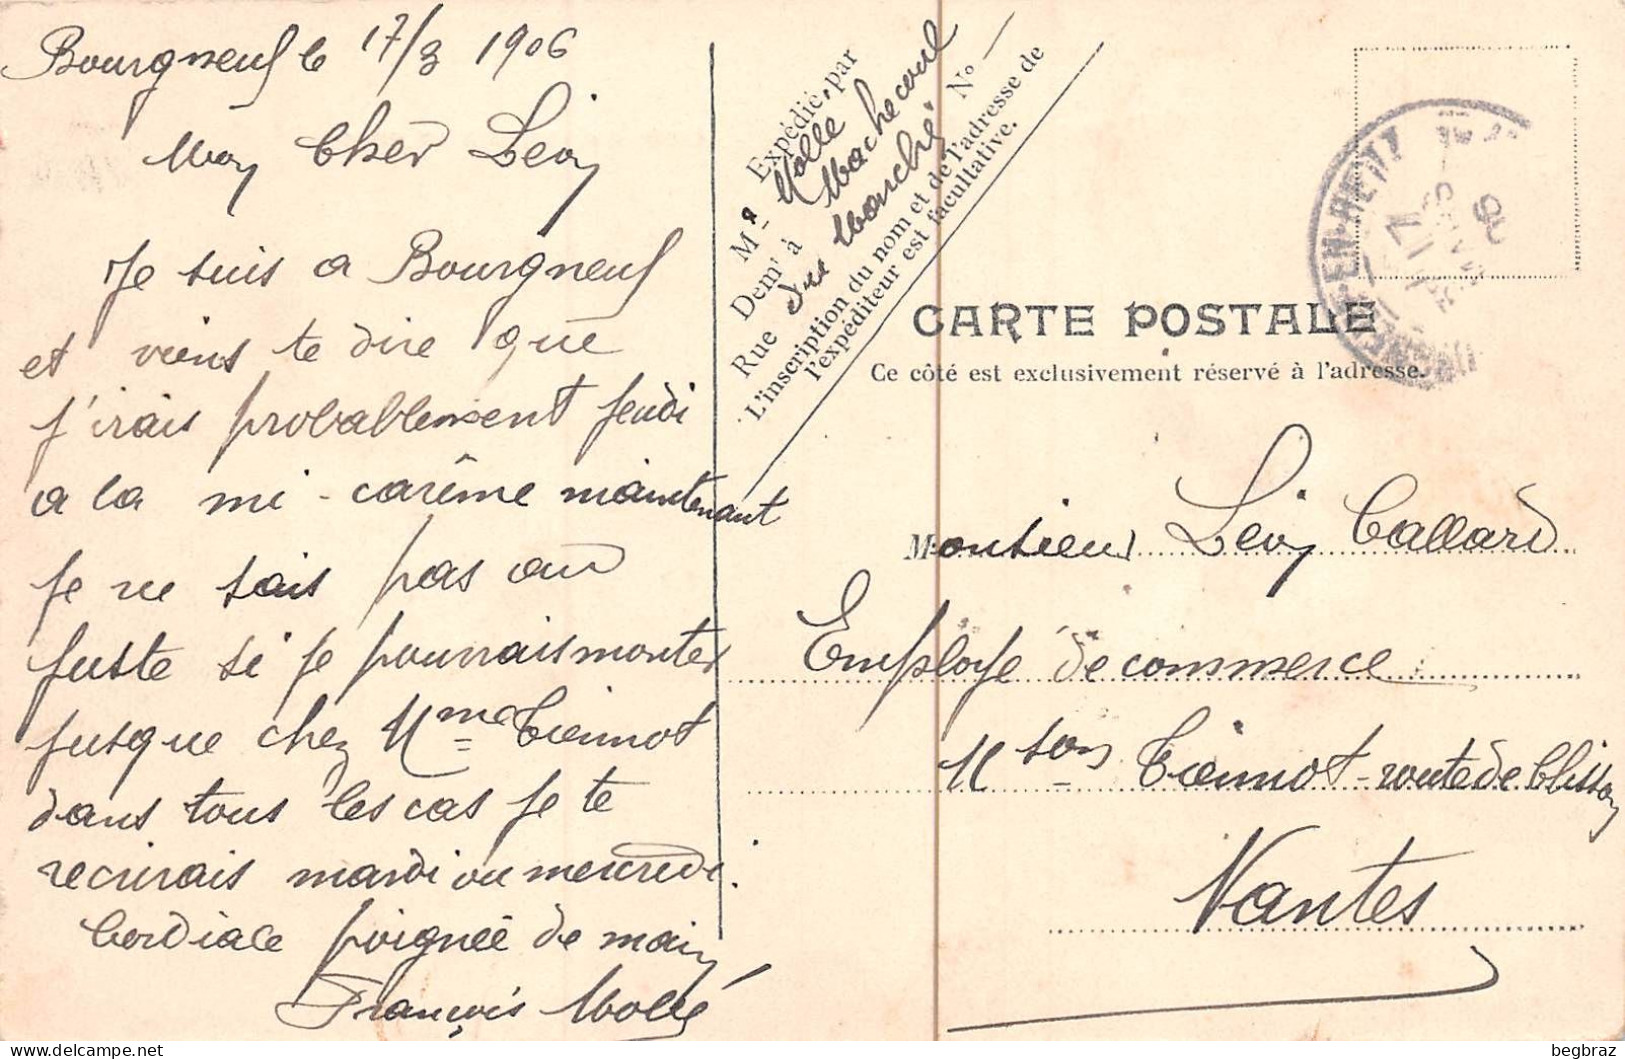 Bourgneuf le 17/3 1906
Mon Cher Levy
Je suis a Bourgneuf
et viens te dire que
j'irais probablement jeudi
a la mi-carême maintenant
je ne sais pas au
juste si je pourrais monter
jusque chez Mme
dans tous les cas je te
recrirais mardi ou mercredi.
Cordiale poignée de main
François Mollé
Expédié par
Mr Molle
Demt à Machecoul
Rue du Marché No
L'inscription du nom et de l'adresse de
l'expéditeur est facultative.
CARTE POSTALE
Ce côté est exclusivement réservé à l'adresse.
Monsieur Levy Callard
Employe de commerce
Mson route de Clisson
Nantes
EN-RETZ
17
06
begbraz